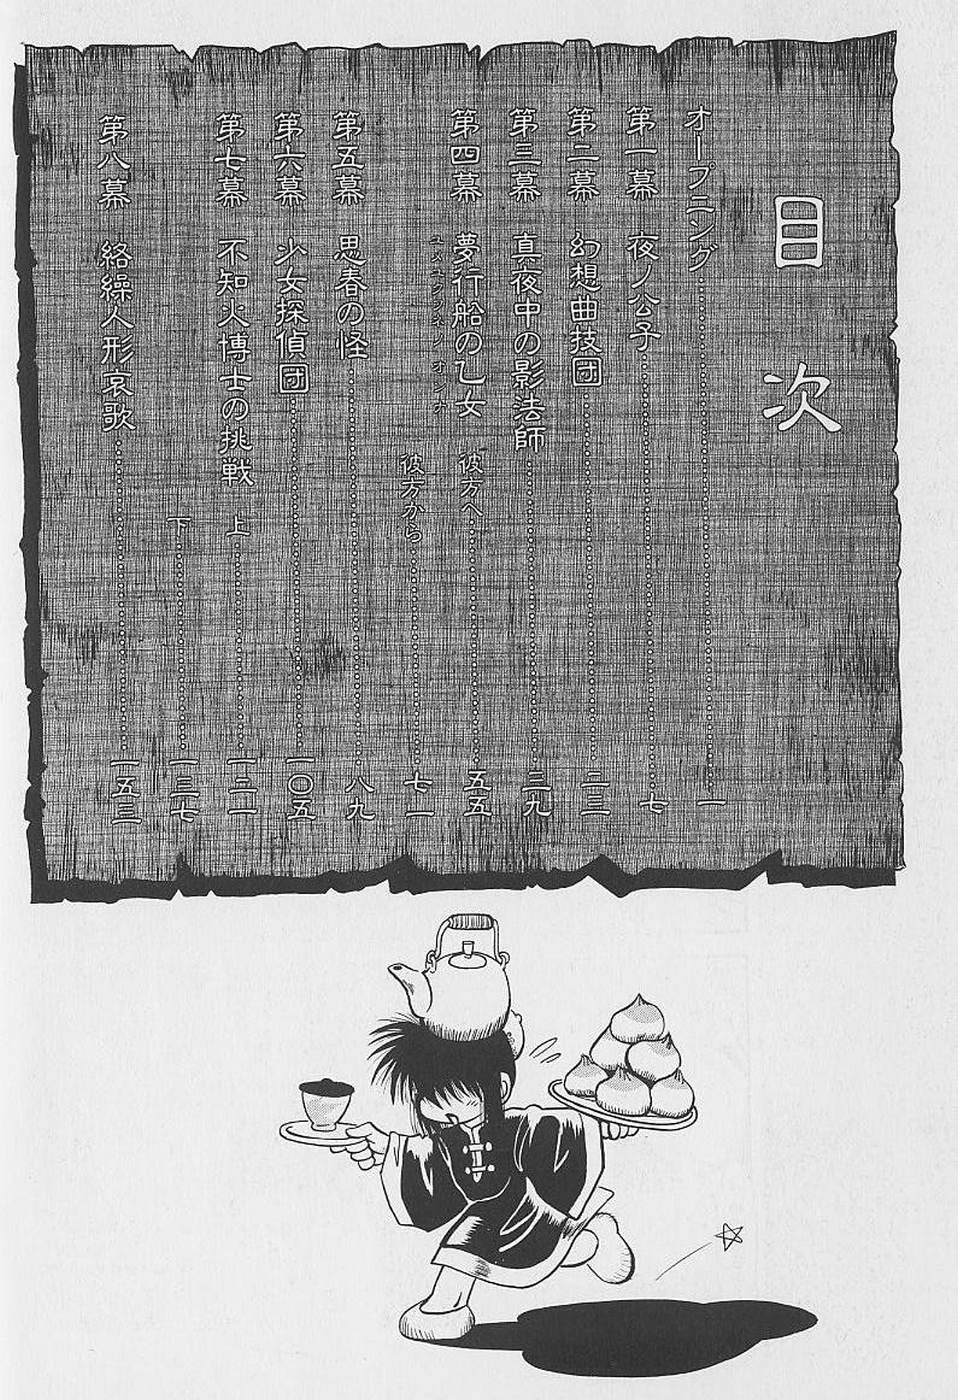 目次
オープニング……一
第一幕 夜ノ公子……七
第二幕 幻想曲技団……二三
第三幕 真夜中の影法師……三九
第四幕 夢行船の乙女 彼方へ……五五
ユメユクフネノオンナ
彼方から……七一
第五幕 思春の怪……八九
第六幕 少女探偵団……一〇五
第七幕 不知火博士の挑戦 上……一二一
下……一三七
第八幕 絡繰人形哀歌……一五三